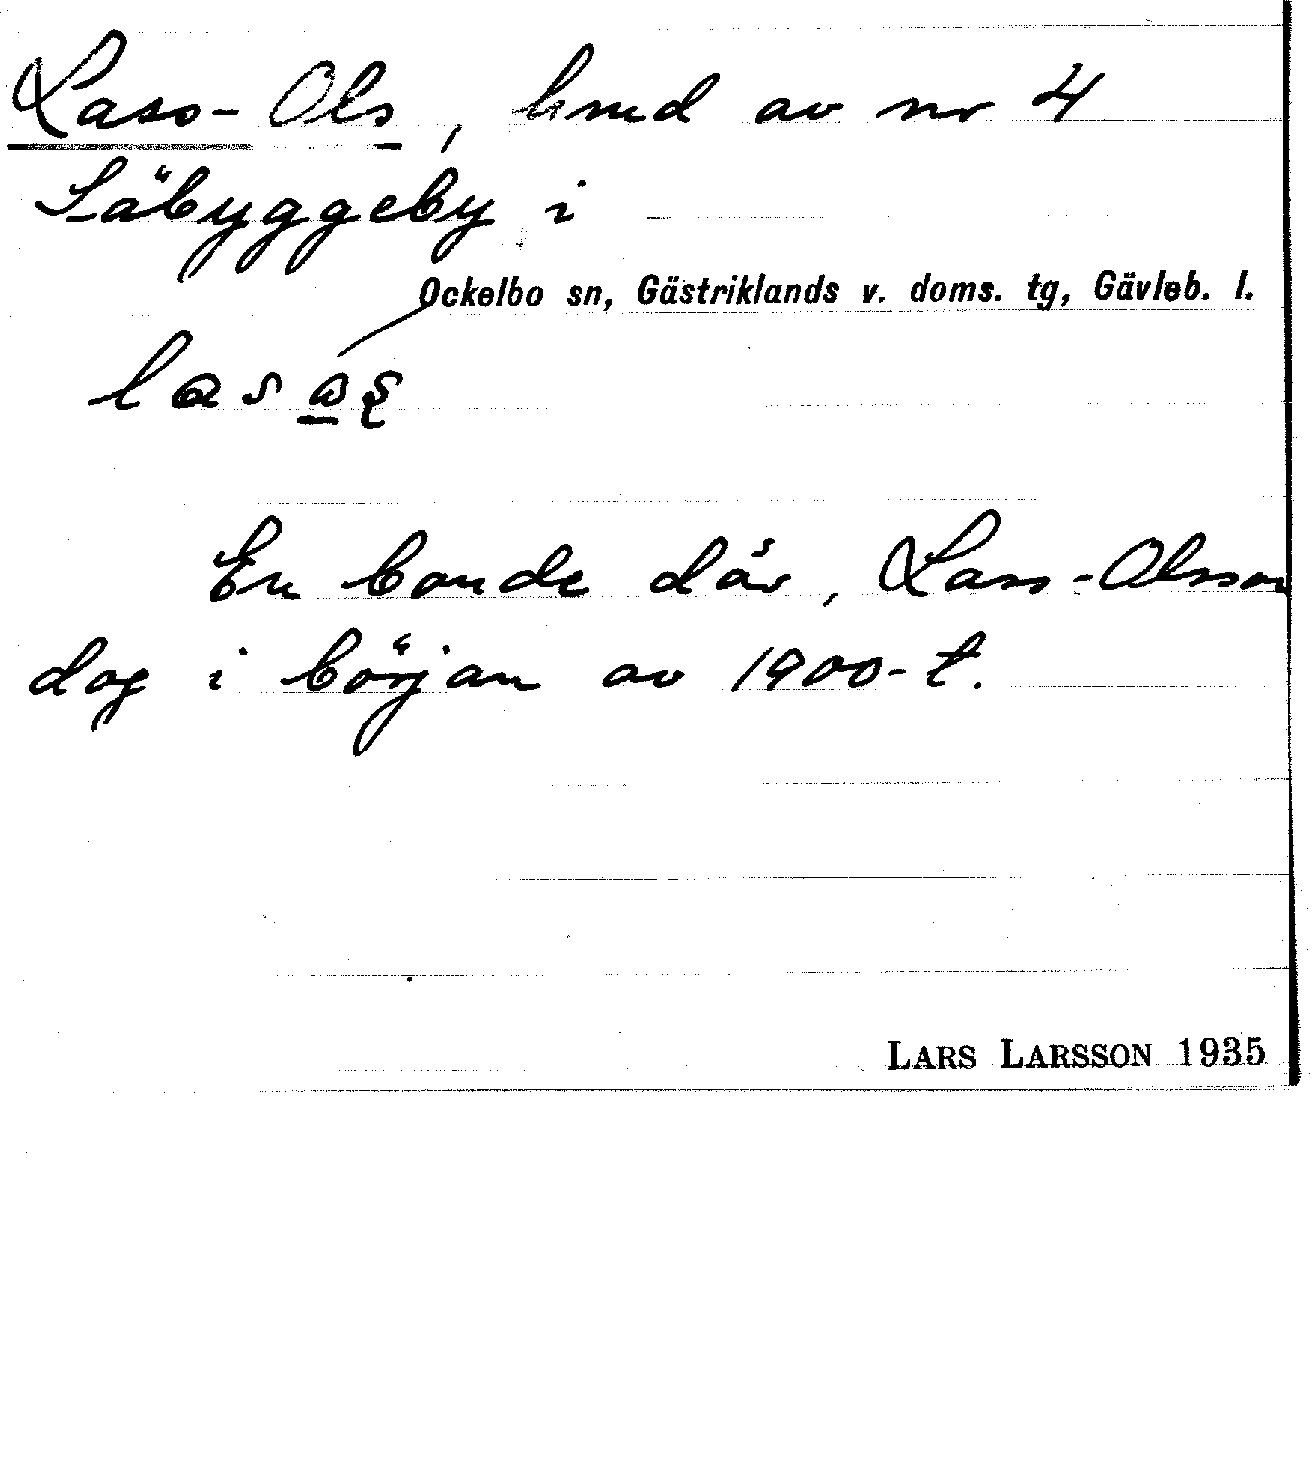 Lass-Ols, hmd av nr 4
Säbyggeby i
Ockelbo sn, Gästriklands v. doms. tg, Gävleb. l.
En bonde där, Lass-Olsson
dog i början av 1900-t.
LARS LARSSON 1935